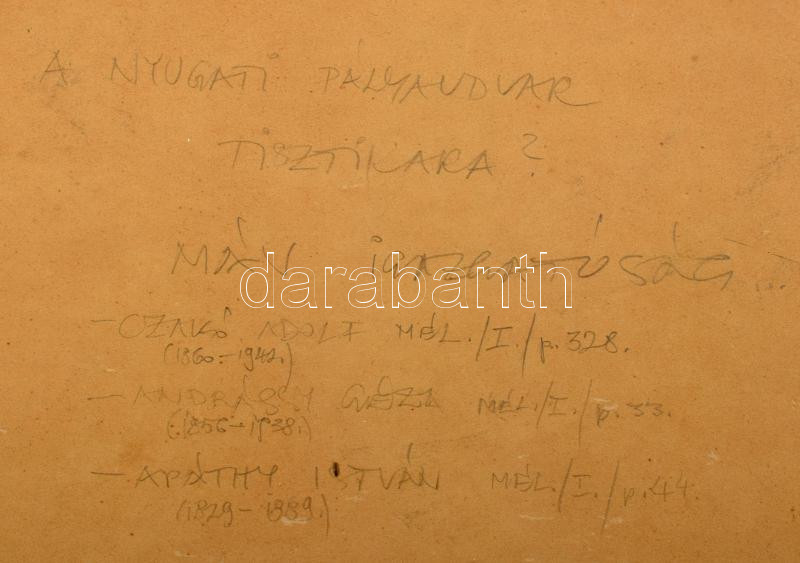 A NYUGATI PÁLYAUDVAR
TISZTIKARA?
MÁV IGAZGATÓSÁG...
darabanth
ADOLF MÉL./I./p. 328.
(1860.-1942.)
- ANDRÁSSY GÉZA MÉL./I./p. 33.
(1856-1938.)
- APÁTHY ISTVÁN MÉL./I./p. 44.
(1829-1889.)